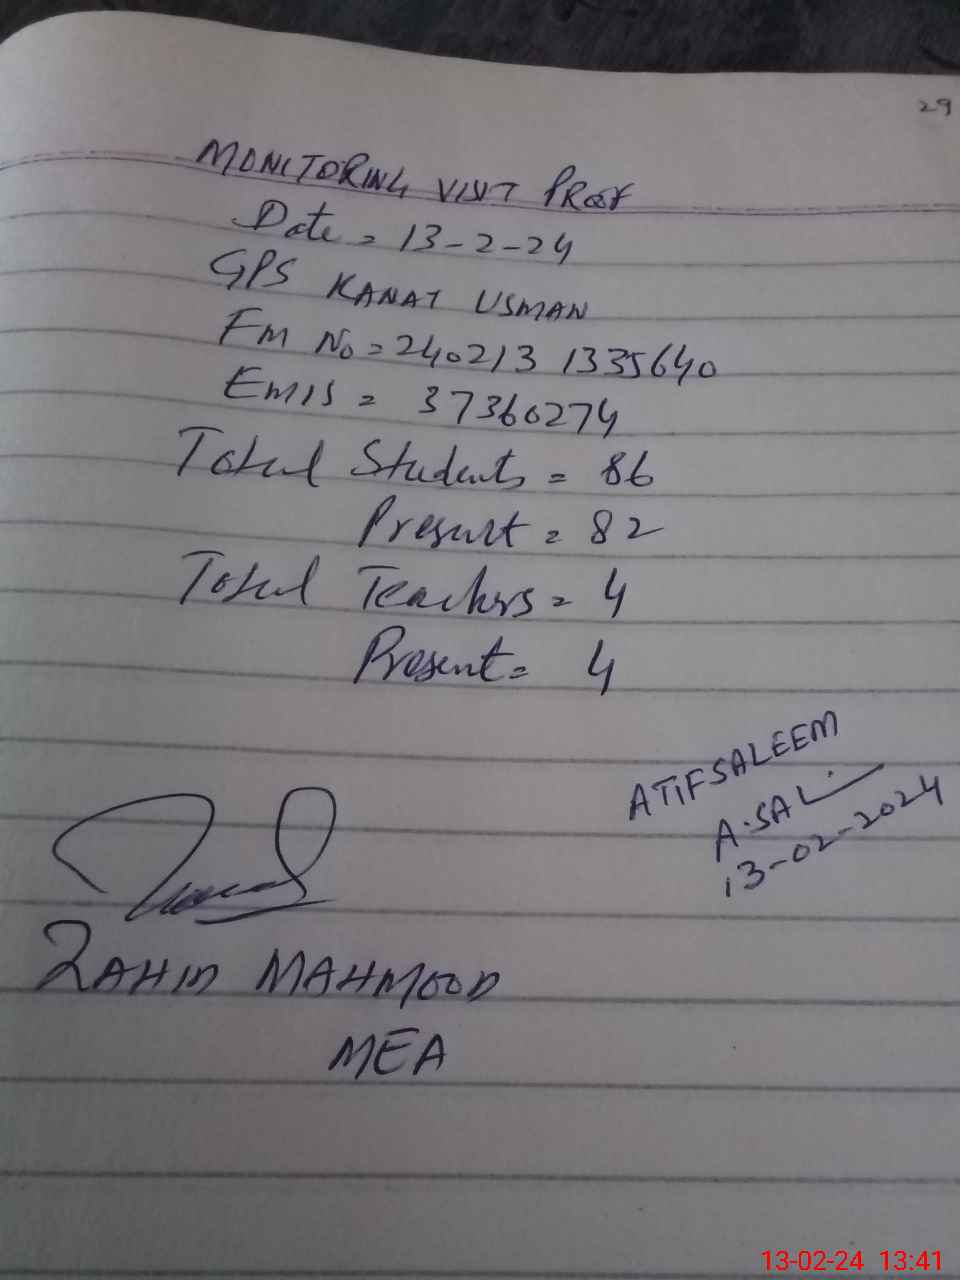 29
MONITORING VISIT PROOF
Date = 13-2-24
GPS KANAT USMAN
FM No = 240213 1335640
EMIS = 37360274
Total Students = 86
Present = 82
Total Teachers = 4
Present = 4
ATIF SALEEM
A.SAL
13-02-2024
ZAHID MAHMOOD
MEA
13-02-24 13:41